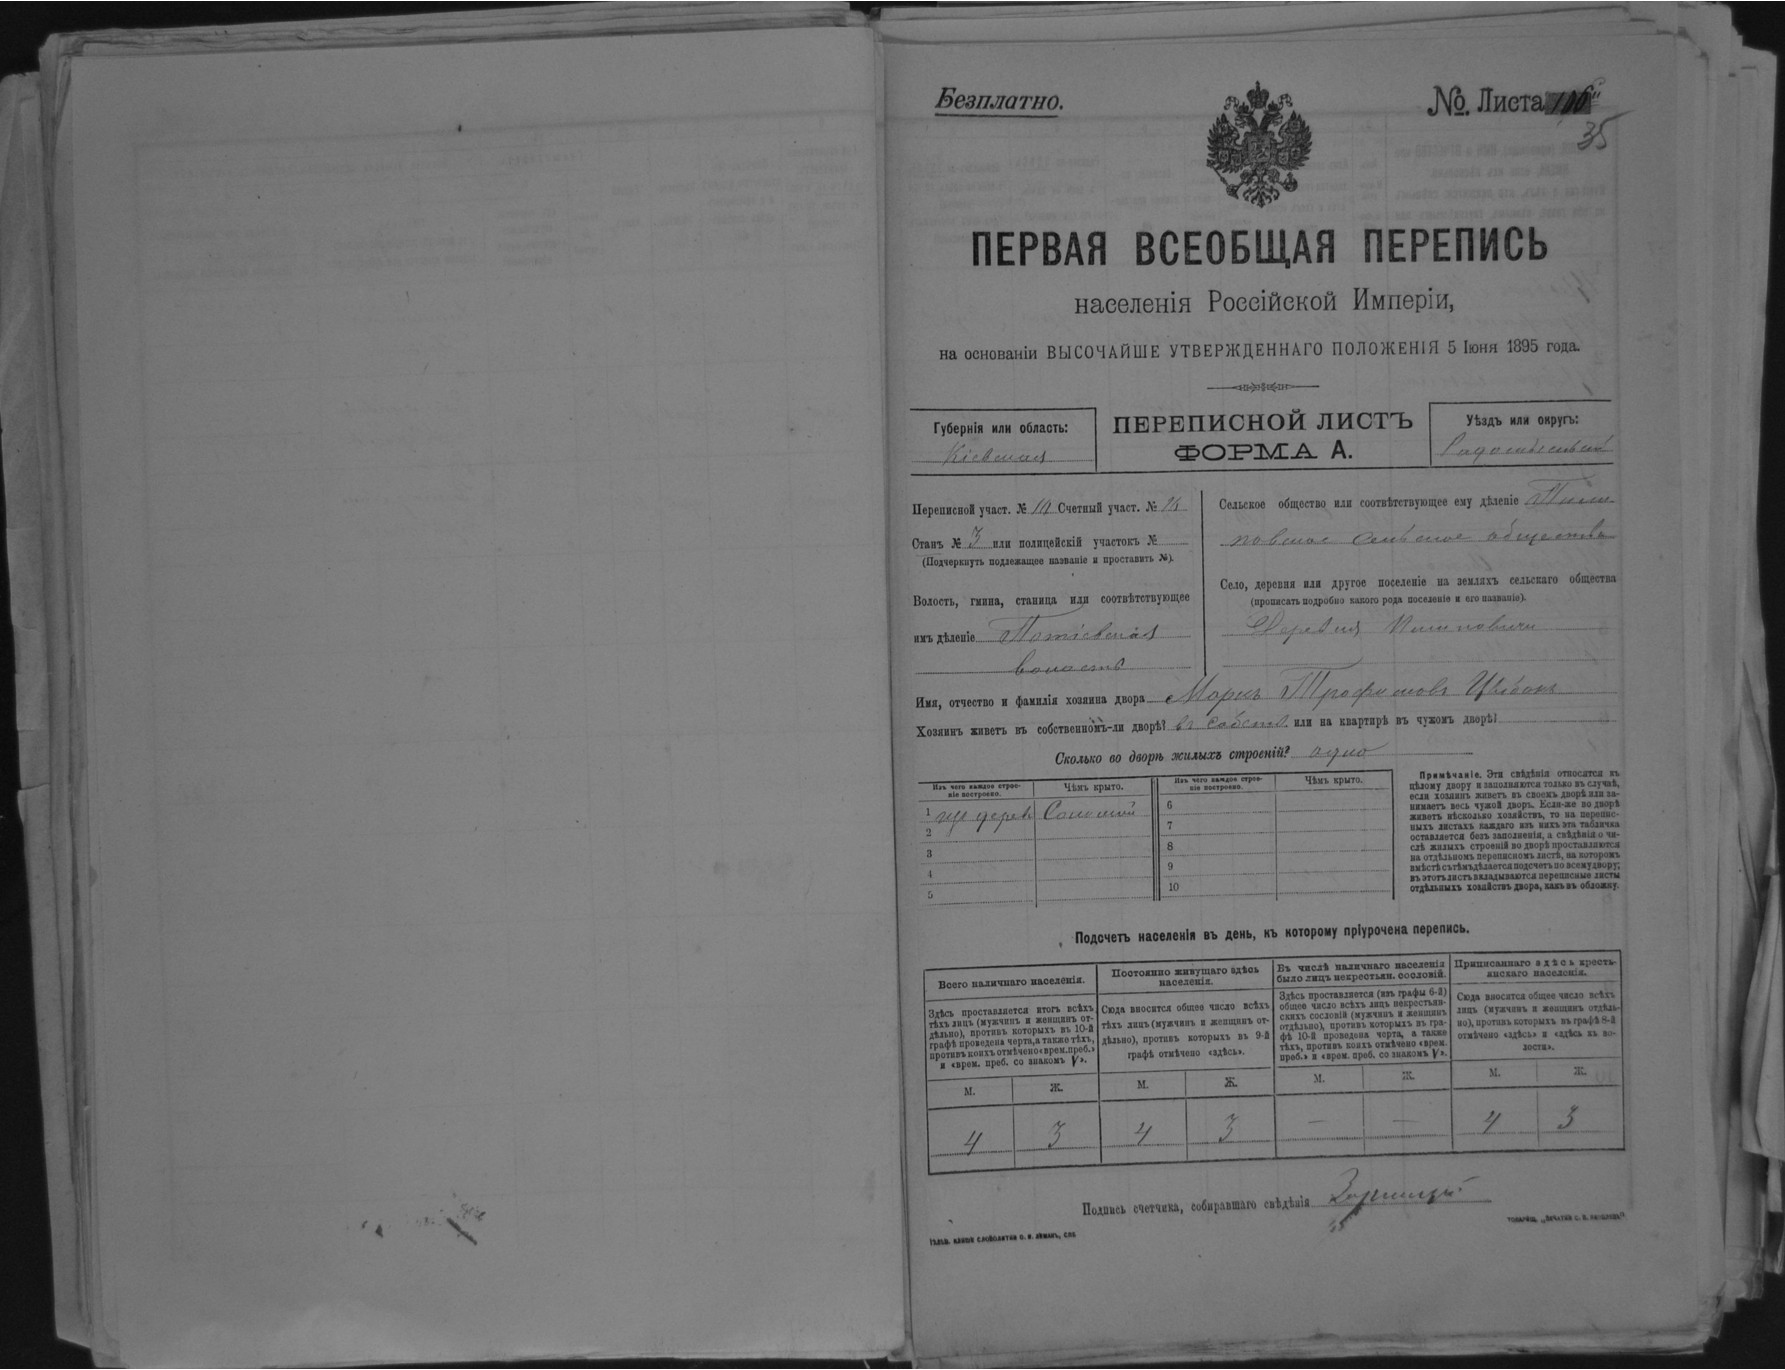 Безплатно.
№. Листа
35
ПЕРВАЯ ВСЕОБЩАЯ ПЕРЕПИСЬ
населенія Россійской Имперіи,
на основаніи ВЫСОЧАЙШЕ УТВЕРЖДЕННАГО ПОЛОЖЕНІЯ 5 Іюня 1895 года.
Губернія или область:
Кіевская
ПЕРЕПИСНОЙ ЛИСТЪ
ФОРМА А.
Уѣздъ или округъ:
Радомысльскій
Переписной участ. № Счетный участ. №
Станъ № 3 или полицейскій участокъ №
(Подчеркнуть подлежащее названіе и проставить №).
Волость, гмина, станица или соотвѣтствующее
имъ дѣленіе Потіевская
волость
Сельское общество или соотвѣтствующее ему дѣленіе
сельское общество
Село, деревня или другое поселеніе на земляхъ сельскаго общества
(прописать подробно какого рода поселеніе и его названіе).
Деревня
Имя, отчество и фамилія хозяина двора Трофимовъ
Хозяинъ живетъ въ собственномъ-ли дворѣ? въ собств. или на квартирѣ въ чужомъ дворѣ?
Сколько во дворѣ жилыхъ строеній? одно
Изъ чего каждое строе-
ніе построено.
Чѣмъ крыто.
Изъ чего каждое строе-
ніе построено.
Чѣмъ крыто.
1 изъ дерева Соломой
2
3
4
5
6
7
8
9
10
Примѣчаніе. Эти свѣдѣнія относятся къ
цѣлому двору и заполняются только въ случаѣ,
если хозяинъ живетъ въ своемъ дворѣ или за-
нимаетъ весь чужой дворъ. Если-же во дворѣ
живетъ нѣсколько хозяйствъ, то на перепис-
ныхъ листахъ каждаго изъ нихъ эта табличка
оставляется безъ заполненія, а свѣдѣнія о чи-
слѣ жилыхъ строеній во дворѣ проставляются
на отдѣльномъ переписномъ листѣ, на которомъ
вмѣстѣ съ тѣмъ дѣлается подсчетъ по всему двору;
въ этотъ листъ вкладываются переписные листы
отдѣльныхъ хозяйствъ двора, какъ въ обложку.
Подсчетъ населенія въ день, къ которому пріурочена перепись.
Всего наличнаго населенія.
Здѣсь проставляется итогъ всѣхъ
тѣхъ лицъ (мужчинъ и женщинъ от-
дѣльно), противъ которыхъ въ 10-й
графѣ проведена черта, а также тѣхъ,
противъ коихъ отмѣчено «врем. преб.»
и «врем. преб. со знакомъ V».
Постоянно живущаго здѣсь
населенія.
Сюда вносится общее число всѣхъ
тѣхъ лицъ (мужчинъ и женщинъ от-
дѣльно), противъ которыхъ въ 9-й
графѣ отмѣчено «здѣсь».
Въ числѣ наличнаго населенія
было лицъ некрестьян. сословій.
Здѣсь проставляется (изъ графы 6-й)
общее число всѣхъ лицъ некрестьян-
скихъ сословій (мужчинъ и женщинъ
отдѣльно), противъ которыхъ въ гра-
фѣ 10-й проведена черта, а также
тѣхъ, противъ коихъ отмѣчено «врем.
преб.» и «врем. преб. со знакомъ V».
Приписаннаго здѣсь кресть-
янскаго населенія.
Сюда вносится общее число всѣхъ
лицъ (мужчинъ и женщинъ отдѣль-
но), противъ которыхъ въ графѣ 8-й
отмѣчено «здѣсь» и «здѣсь въ во-
лости».
М. Ж. М. Ж. М. Ж. М. Ж.
4 3 4 3 — — 4 3
Подпись счетчика, собиравшаго свѣдѣнія